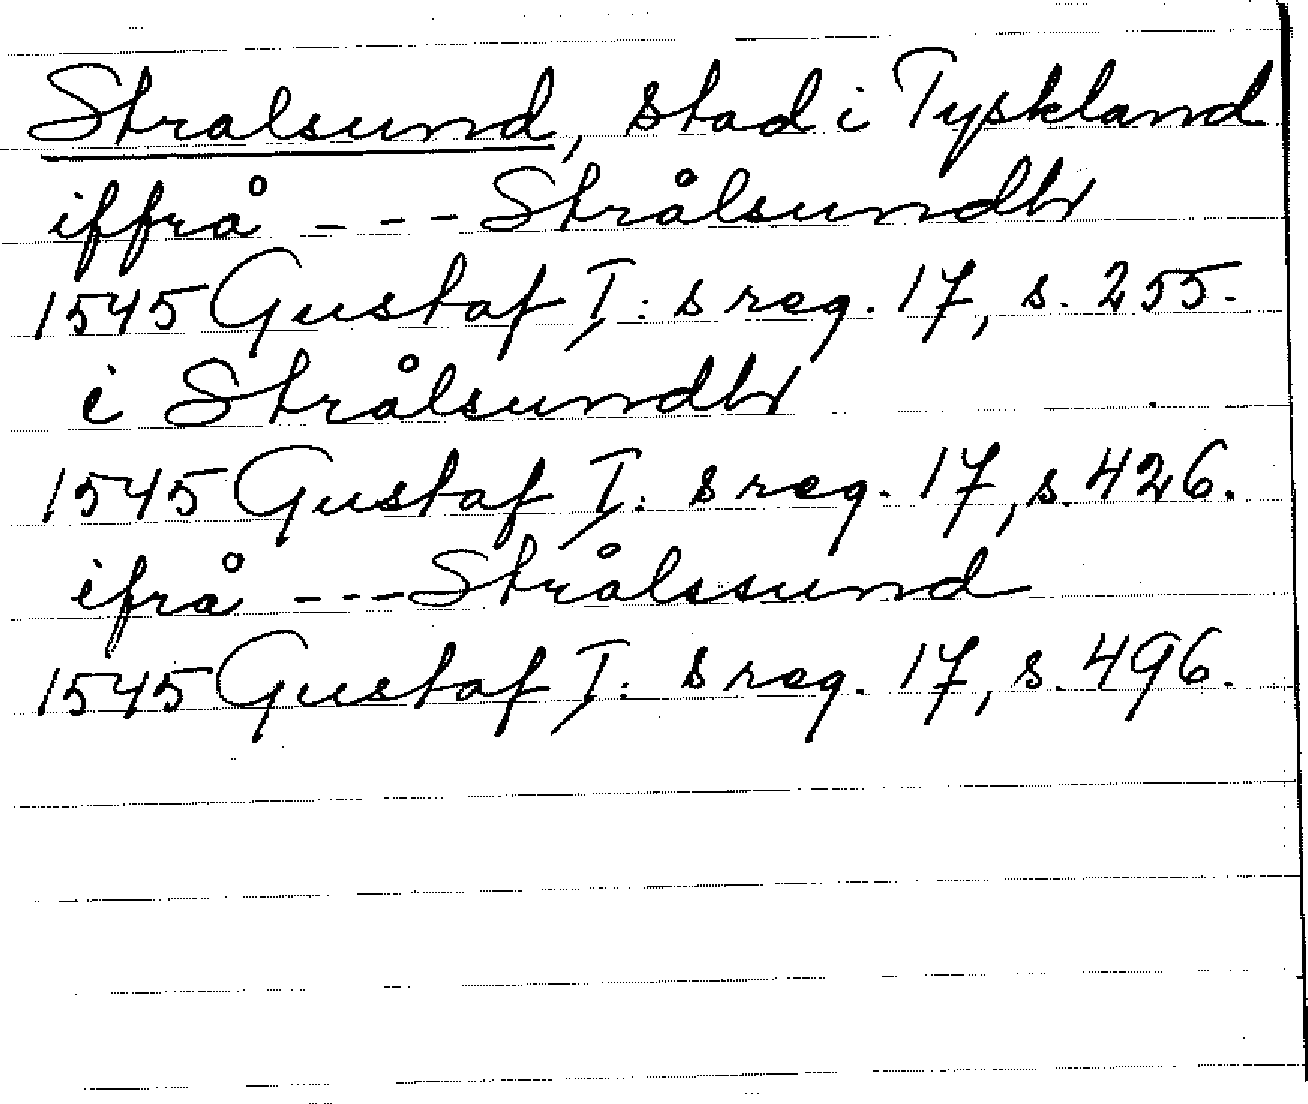 Stralsund, stad i Tyskland
iffrå - - - Strålsundh
1545 Gustaf I: s reg. 17, s. 255.
i Strålsundh
1545 Gustaf I: s reg. 17, s. 426.
ifrå - - - Strålssund
1545 Gustaf I: s reg. 17, s. 496.